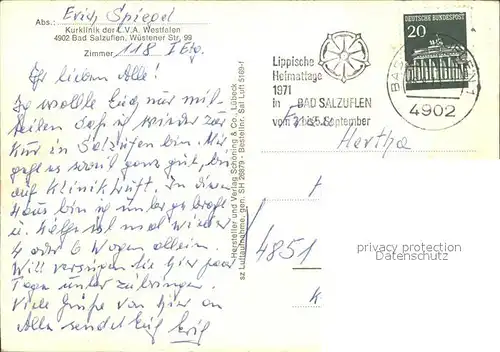 Erich Spiegel
Abs.:
Kurklinik der L.V.A. Westfalen
4902 Bad Salzuflen, Wüstener Str. 99
Zimmer 118 I Etg.
Ihr lieben Alle!
Ich wollte Euch nur mit-
teilen daß ich wieder zur
Kur in Salzuflen bin. Mir
geht es soweit ganz gut, bin
auf Klinikkur. In diesem
Haus bin ich untergebracht
u. mal wieder
4 oder 6 Wochen allein.
Will versuchen die hier paar
Tage unter zubringen.
Viele Grüße von hier an
Alle sendet Euch Erich
Hersteller und Verlag Schöning & Co., Lübeck
sz Luftaufnahme, gen. SH 26879 - Bestellnr. Sal Luft 5186-f
Lippische
Heimattage
1971
in BAD SALZUFLEN
vom September
DEUTSCHE BUNDESPOST
20
BAD
4902
Hertha
4851
privacy protection
Datenschutz